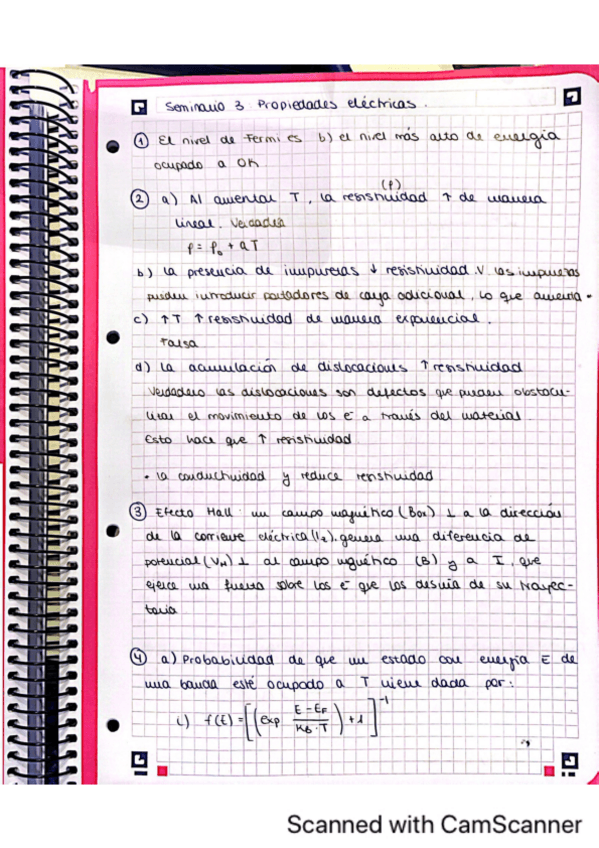 Seminario 3 Propiedades eléctricas.
① El nivel de Fermi es b) el nivel más alto de energía
ocupado a 0K
(ρ)
② a) Al aumentar T, la resistividad ↑ de manera
lineal. Verdadera
ρ = ρ₀ + aT
b) la presencia de impurezas ↓ resistividad. V. las impurezas
pueden introducir portadores de carga adicional, lo que aumenta •
c) ↑T ↑ resistividad de manera exponencial.
Falsa
d) la acumulación de dislocaciones ↑ resistividad
Verdadero las dislocaciones son defectos que pueden obstacu-
lizar el movimiento de los e⁻ a través del material
Esto hace que ↑ resistividad
• la conductividad y reduce resistividad
③ Efecto Hall: un campo magnético (Box) ⊥ a la dirección
de la corriente eléctrica (I₂), genera una diferencia de
potencial (V_H) ⊥ al campo magnético (B) y a I, que
ejerce una fuerza sobre los e⁻ que los desvía de su trayec-
toria
④ a) Probabilidad de que un estado con energía E de
una banda esté ocupado a T viene dada por:
i) f(E) = [(exp (E - E_F)/(K_B · T)) + 1]⁻¹
Scanned with CamScanner